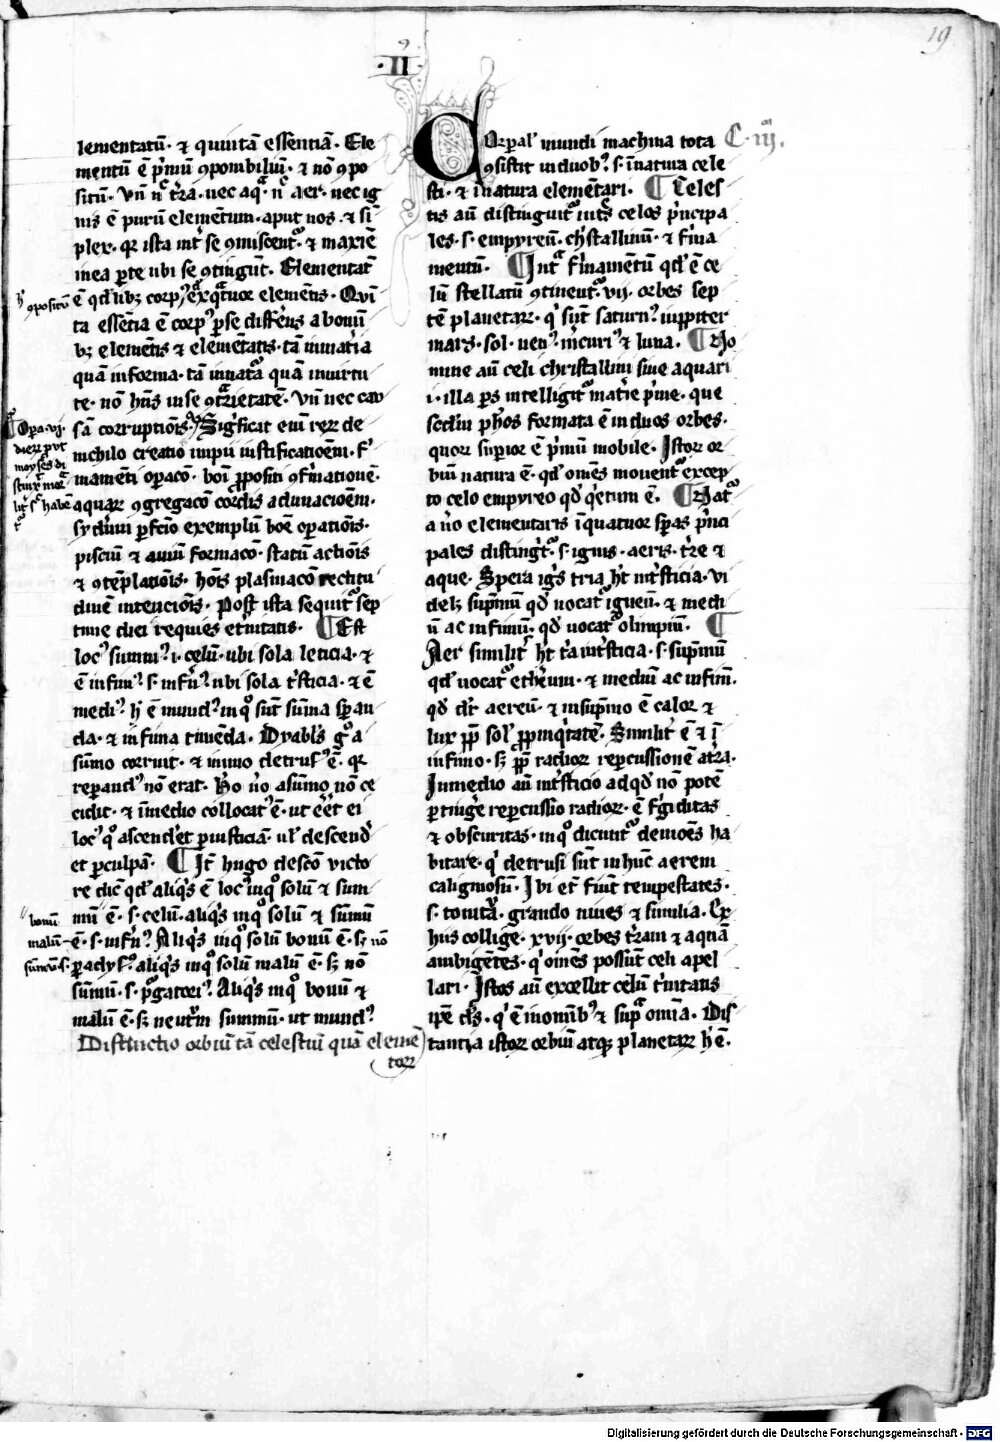 19
.II.
lementatū. ⁊ quintā essentiā. Ele
mentū ē p̄mū ꝯponibiliū. ⁊ nō ꝯpo
situ̅. Vn̄ nͨ t̄ra. nec aqͣ. nͨ aer. nec ig
nis ē purū elementum. aput nos. ⁊ si̅
plex. qr ista int̾ se ꝯmiscentͬ. ⁊ maxīe
in ea ꝑte ubi se ꝯtingūt. Elementat̄
ē qd̾ libꝫ corpꝰ ex qͣtuor elemētis. Qvī
ta essētia ē corpꝰ ꝑ se differ̄s a bonū
bꝫ elemētis ⁊ elemētatis. tā in mat̾ia
quā in forma. tā in natͣa quā in virtu
te. nō hn̄s in se ꝯtͣrietatē. Vn̄ nec cau
sā corruptiōis. Sig̾ficat eni̅ reꝝ de
nichilo creatio impii iustificatiōem. fi̾
mamēti oꝑacō. boni ꝓpositi ꝯfi̾mationē.
aquaꝝ ꝯgregacō cordis adunacioēm.
syderū ꝑfectio exemplū boē oꝑatiōis.
pisciū ⁊ auiū formacō. statū actiōis
⁊ ꝯtēplatiōis. hoīs plasmacō rectitu
dinē intenciōis. Post ista sequitͬ sep
time diei requies et̾nitatis. ¶ Est
locꝰ sūmꝰ. i. celū. ubi sola leticia. ⁊
ē infimꝰ. s. infn̾ꝰ. ubi sola t̾sticia. ⁊ ē
mediꝰ. h̾ ē mundꝰ. in qͦ sūt sūma sꝑan
da. ⁊ infima timēda. Dyablꝰ gͦ a
sūmo corruit. ⁊ in imo detrusꝰ ē. qr
reꝑandꝰ nō erat. Ho ūo a sūmo nō ce
cidit. ⁊ ī medio collocatꝰ ē. ut eēt ei
locꝰ qͦ ascend̾et ꝑ iusticiā. ul̾ descend̾
et ꝑ culpā. ¶ Itē hugo de sc̄o victo
re dic̄ qd̾ aliqͥs ē locꝰ in qͦ solū ⁊ sum
mū ē. s. celū. aliqͥs in qͦ solū ⁊ sūmū
ē. s. infn̾ꝰ. Aliqͥs in qͦ solū bonū ē. sꝫ nō
ꝑadysꝰ. aliqͥs in qͦ solū malū ē. sꝫ nō
sūmū. s. pͬgatoriꝰ. Aliqͥs in qͦ bonū ⁊
malū ē. sꝫ neutrū summū. ut mundꝰ.
Distinctio orbiū tā celestiū quā elemē
toꝝ
ꝯpositū
Oꝑa. vj.
dieꝝ put
moyses di
bonū
malū
sūmū. s.
C. iij.
Corꝑal̾ mundi machina tota
ꝯsistit in duobꝰ. s. in natura cele
sti. ⁊ in natura elemētari. ¶ Celes
tis au̅ distinguitͬ in tͤs celos p̾ncipa
les. s. empyreū. c͛stallinū. ⁊ fi̾ma
mentū. ¶ Intͣ fi̾mamētū qd̾ ē ce
lū stellatū ꝯtinentͬ. vij. orbes sep
tē planetaꝝ. qͥ sūt saturnꝰ. iuppiter
mars. sol. venꝰ. m̾curiꝰ ⁊ luna. ¶ No
mine au̅ celi christallini siue aquari
i. illa ꝑs intelligitͬ mat̾ie p̾me. que
scd̾m ph̾os formata ē in duos orbes.
quoꝝ suꝑior ē p̾mū mobile. Istoꝝ or
biū natura ē. qd̾ om̄es mouentͬ excep
to celo empyreo qd̾ qͥetum ē. ¶ Natͬ
a ūo elementaris ī quatuor sꝑas p̾nci
pales distingͥtͬ. s. ignis. aeris. t̾re ⁊
aque. Spera ig̾s tria h̾t int̾sticia. vi
delꝫ sup̾mū qd̾ vocatͬ igneū. ⁊ medi
ū ac infimū. qd̾ vocatͬ olimpiū. ¶
Aer simil̾it̾ h̾t tͥa int̾sticia. s. sup̾mū
qd̾ vocatͬ ethe̾um. ⁊ mediū ac infimū.
qd̾ dr̄ aereū. ⁊ in sup̾mo ē calor ⁊
lux ꝓp̄ sol̾ ꝓpinqͥtatē. Similit̾ ē ⁊ ī
infimo. sꝫ ꝓp̄ radioꝝ reꝑcussionē a t̾ra.
In medio au̅ int̾sticio ad qd̾ nō potē
ꝑting̾e reꝑcussio radioꝝ. ē fͥgiditas
⁊ obscuritas. in qͦ dicūtͬ demoēs ha
bitare. qͥ detrusi sūt in hūc aerem
caliginosū. Ibi et fiunt tempestates.
s. tonitͬa. grando niues ⁊ similia. Ex
hiis collige. xvij. orbes t̾ram ⁊ aquā
ambigētes. qͥ om̄es possūt celi apel
lari. Istos au̅ excellit celū t̾nitatis
ip̄e d̾s. qͥ ē in omībꝰ ⁊ supͣ omīa. Dis
tantia istoꝝ orbiū atqꝫ planetaꝝ h̾ ē.
Digitalisierung gefördert durch die Deutsche Forschungsgemeinschaft - DFG